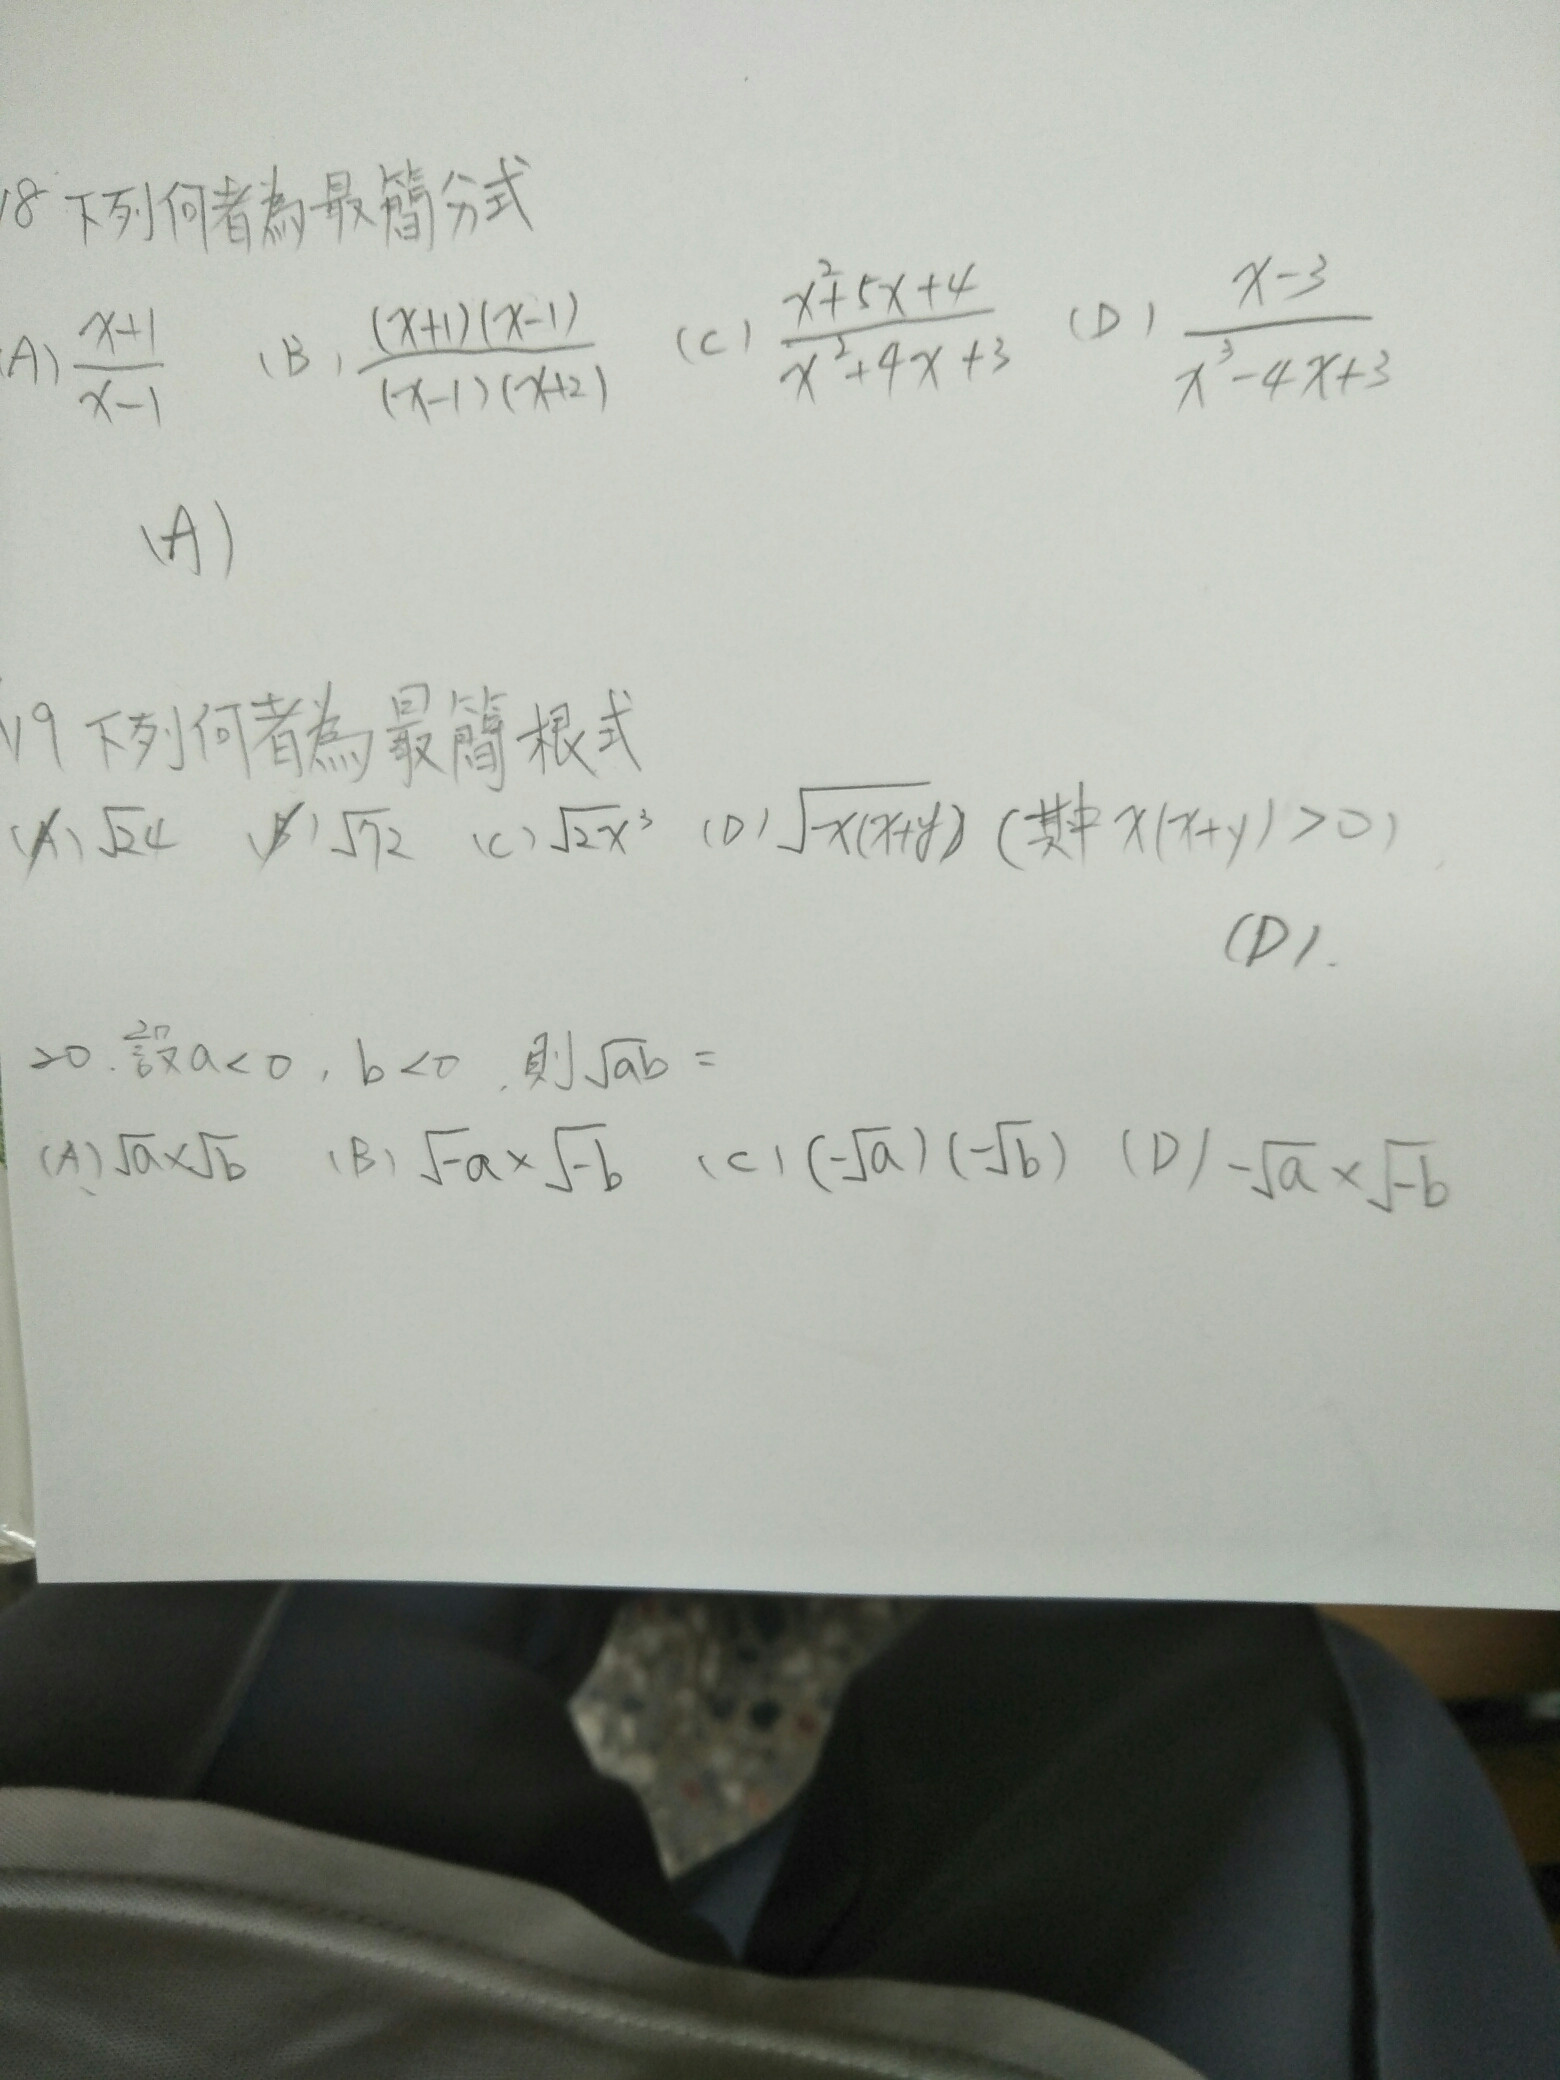 18 下列何者為最簡分式
(A) \frac{x+1}{x-1} (B) \frac{(x+1)(x-1)}{(x-1)(x+2)} (C) \frac{x²+5x+4}{x²+4x+3} (D) \frac{x-3}{x³-4x+3}
(A)
19 下列何者為最簡根式
(A) √24 (B) √72 (C) √2x³ (D) √-x(x+y) (其中 x(x+y)>0)
(D).
20. 設a<0, b<0, 則√ab =
(A) √a×√b (B) √-a×√-b (C) (-√a)(-√b) (D) -√a×√-b